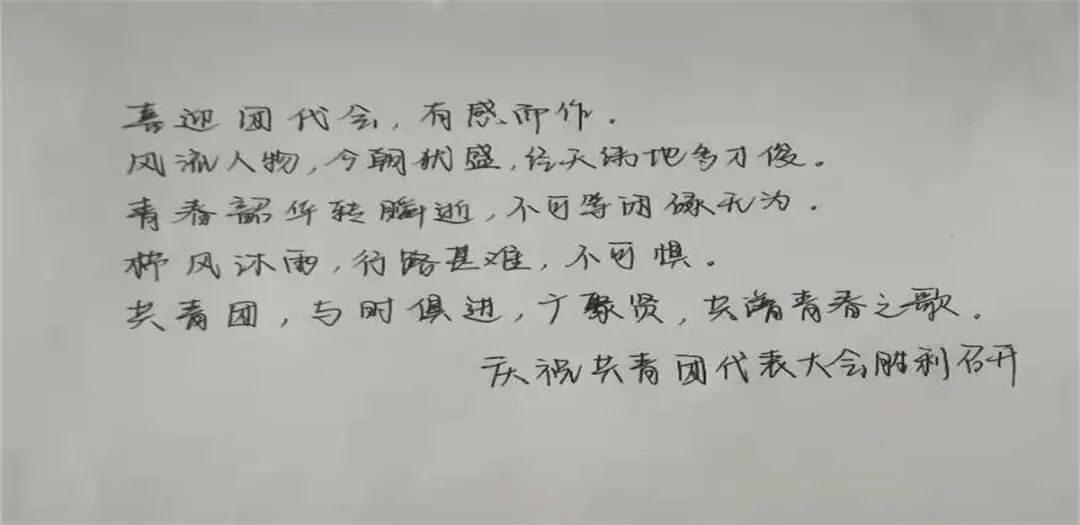 喜迎团代会，有感而作．
风流人物，今朝犹盛，经天纬地多才俊。
青春韶华转瞬逝，不可等闲碌无为．
栉风沐雨，行路甚难，不可惧。
共青团，与时俱进，广聚贤，共谱青春之歌．
庆祝共青团代表大会胜利召开